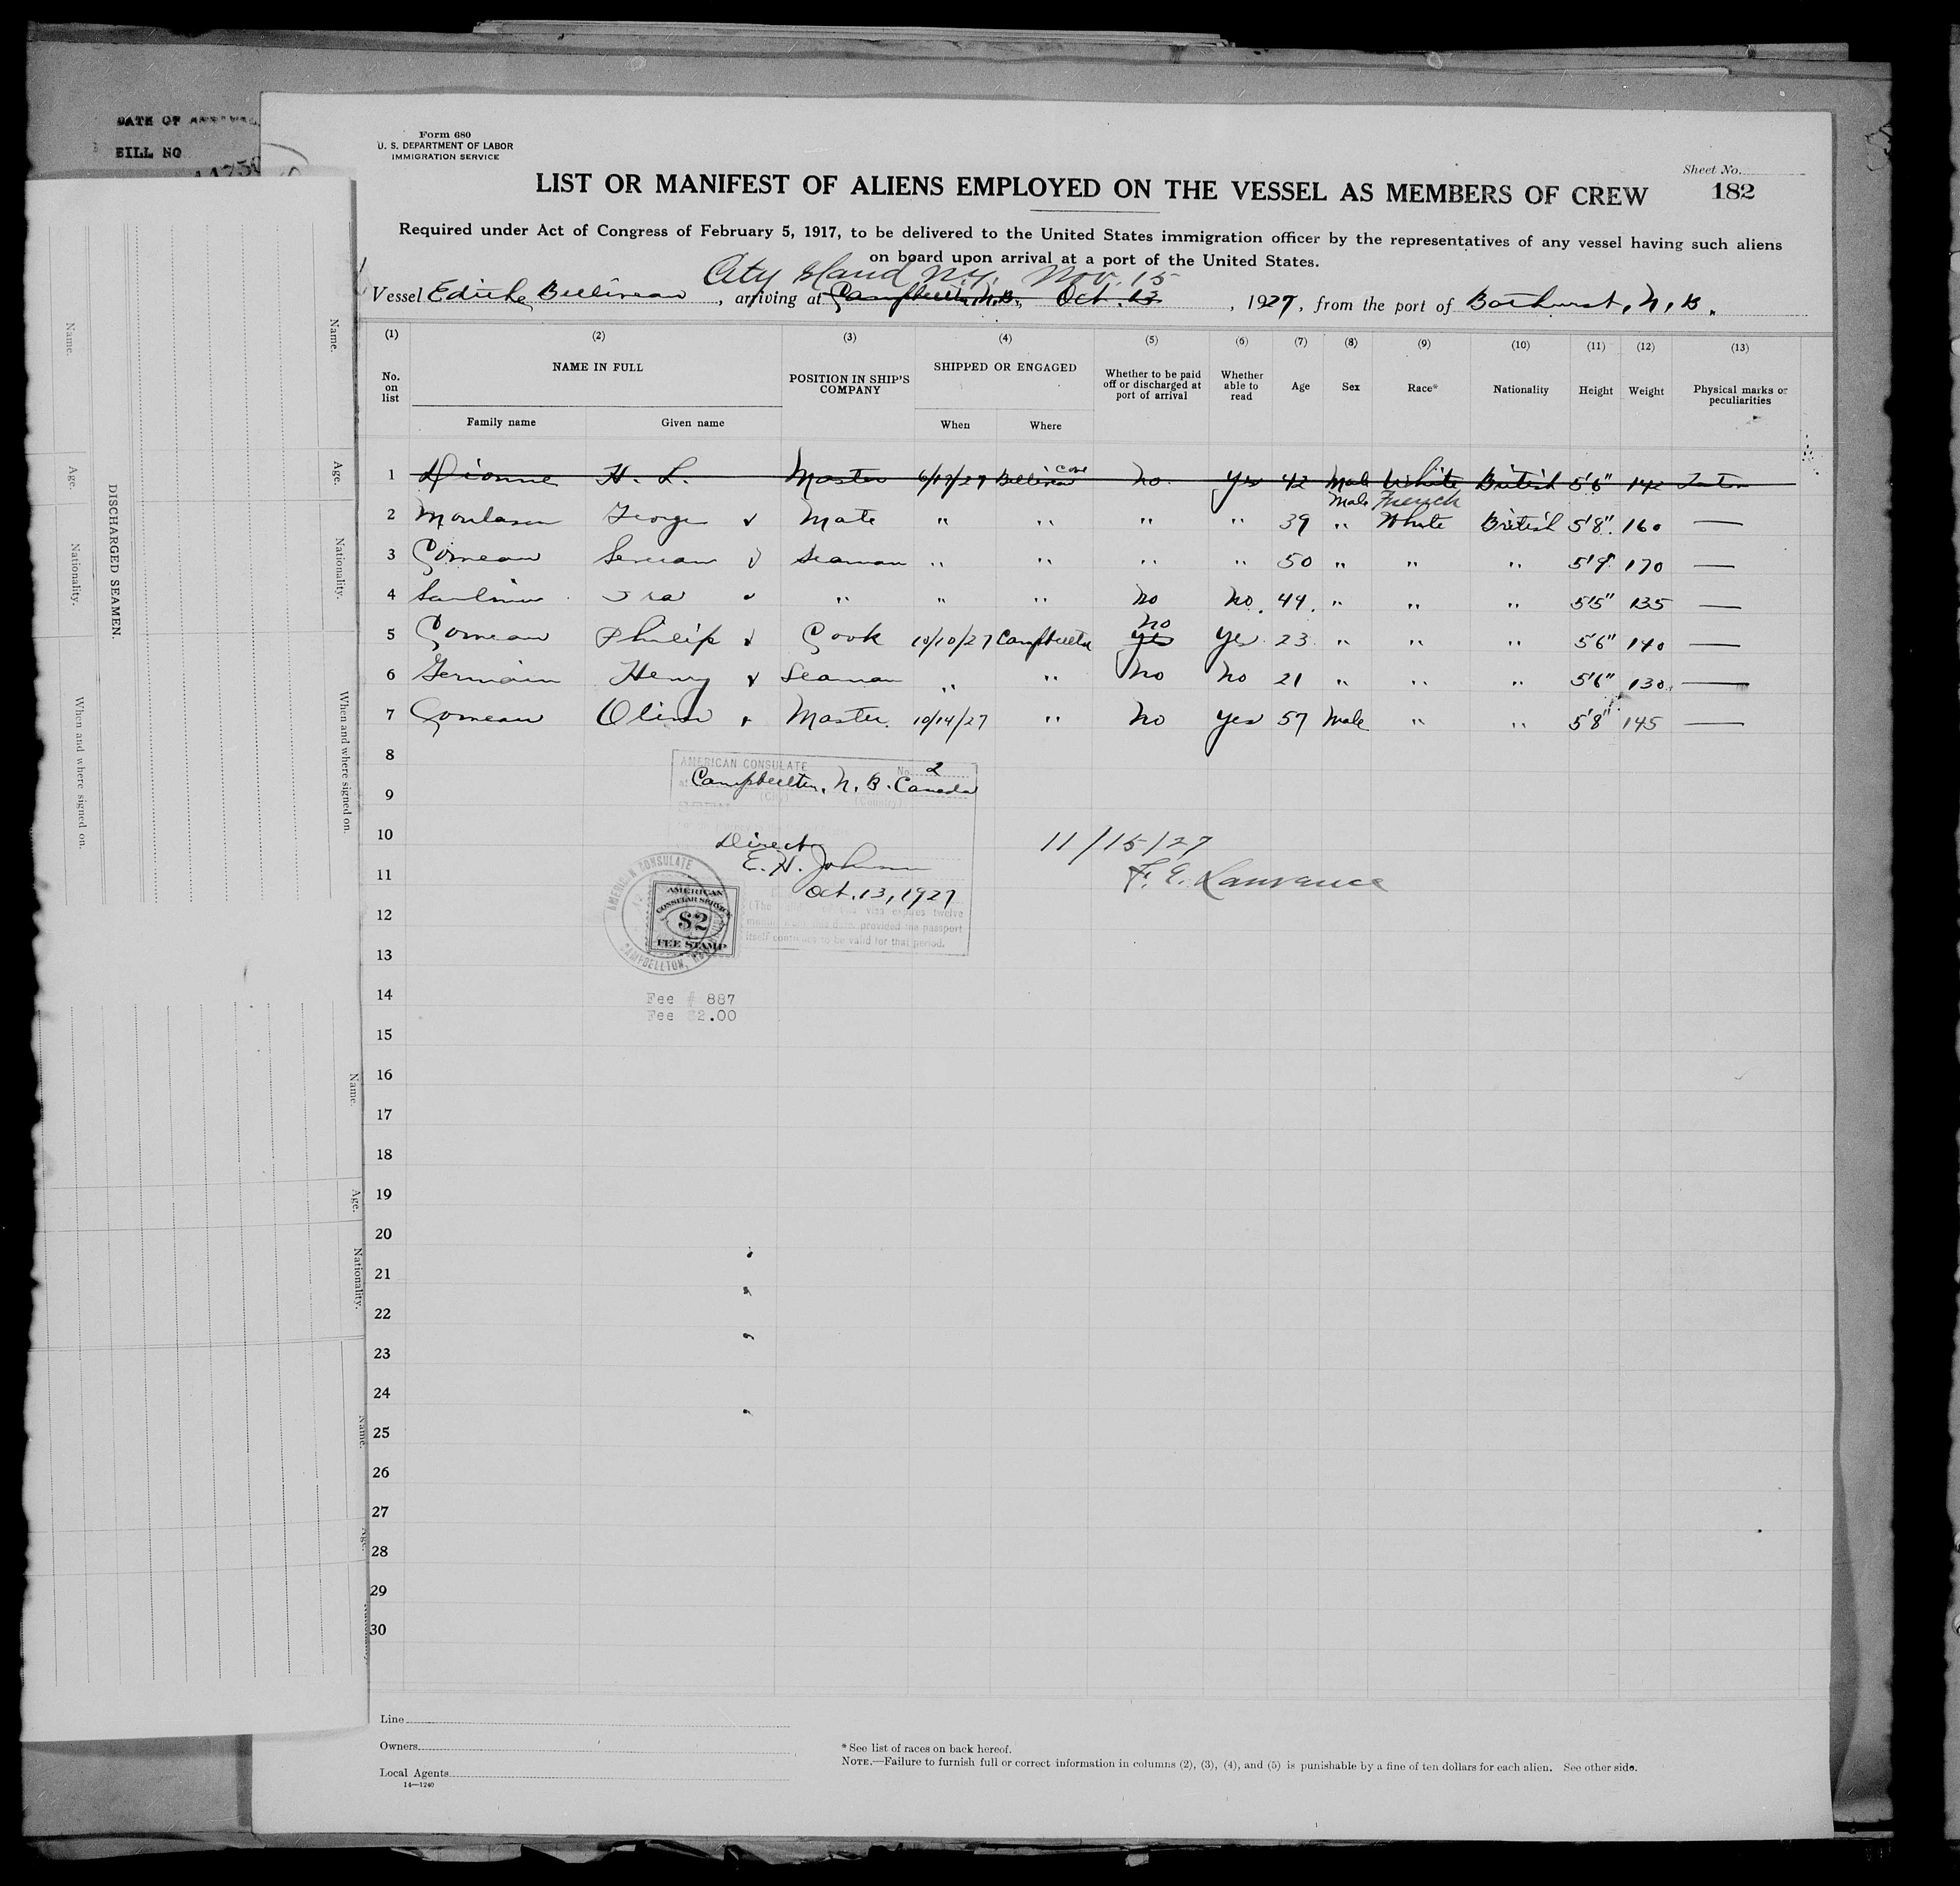 DATE OF
BILL NO
Form 680
U. S. DEPARTMENT OF LABOR
IMMIGRATION SERVICE
Sheet No.
182
LIST OR MANIFEST OF ALIENS EMPLOYED ON THE VESSEL AS MEMBERS OF CREW
Required under Act of Congress of February 5, 1917, to be delivered to the United States immigration officer by the representatives of any vessel having such aliens
on board upon arrival at a port of the United States.
City Island N.Y. Nov. 15
Vessel , arriving at Campbellton, N.B., Oct. 13, 1927, from the port of Bathurst, N. B.
(1) (2) (3) (4) (5) (6) (7) (8) (9) (10) (11) (12) (13)
No. on list NAME IN FULL POSITION IN SHIP'S COMPANY SHIPPED OR ENGAGED Whether to be paid off or discharged at port of arrival Whether able to read Age Sex Race* Nationality Height Weight Physical marks or peculiarities
Family name Given name When Where
1 Dionne H. L. Master Cove no. yes 42 Male White British 5'6" 142
Male French
2 George Mate " " " " 39 " White British 5'8" 160 —
3 Comeau Seaman " " " " 50 " " " 5'9" 170 —
4 Ira " " " no no. 44. " " " 5'5" 135 —
no
5 Comeau Philip Cook 10/10/27 Campbellton yes yes 23 " " " 5'6" 140 —
6 Germain Henry Seaman " " no no 21 " " " 5'6" 130. —
7 Comeau Master. 10/14/27 " no yes 57 Male " " 5'8" 145 —
8
AMERICAN CONSULATE No. 2
Campbellton, N. B. Canada
(City) (Country)
9
10 Direct 11/15/27
11 E. H. Johnson F. E. Lawrence
Oct. 13, 1927
12
visa expires twelve
provided the passport
itself continues to be valid for that period.
AMERICAN CONSULATE
CAMPBELLTON,
AMERICAN
CONSULAR SERVICE
$2
FEE STAMP
13
14
Fee # 887
Fee $2.00
15
16
17
18
19
20
21
22
23
24
25
26
27
28
29
30
Line
Owners
Local Agents
14—1240
* See list of races on back hereof.
NOTE.—Failure to furnish full or correct information in columns (2), (3), (4), and (5) is punishable by a fine of ten dollars for each alien. See other side.
DISCHARGED SEAMEN.
Name.
Age.
Nationality.
When and where signed on.
Name.
Age.
Nationality.
When and where signed on.
Name.
Age.
Nationality.
Name.
Age.